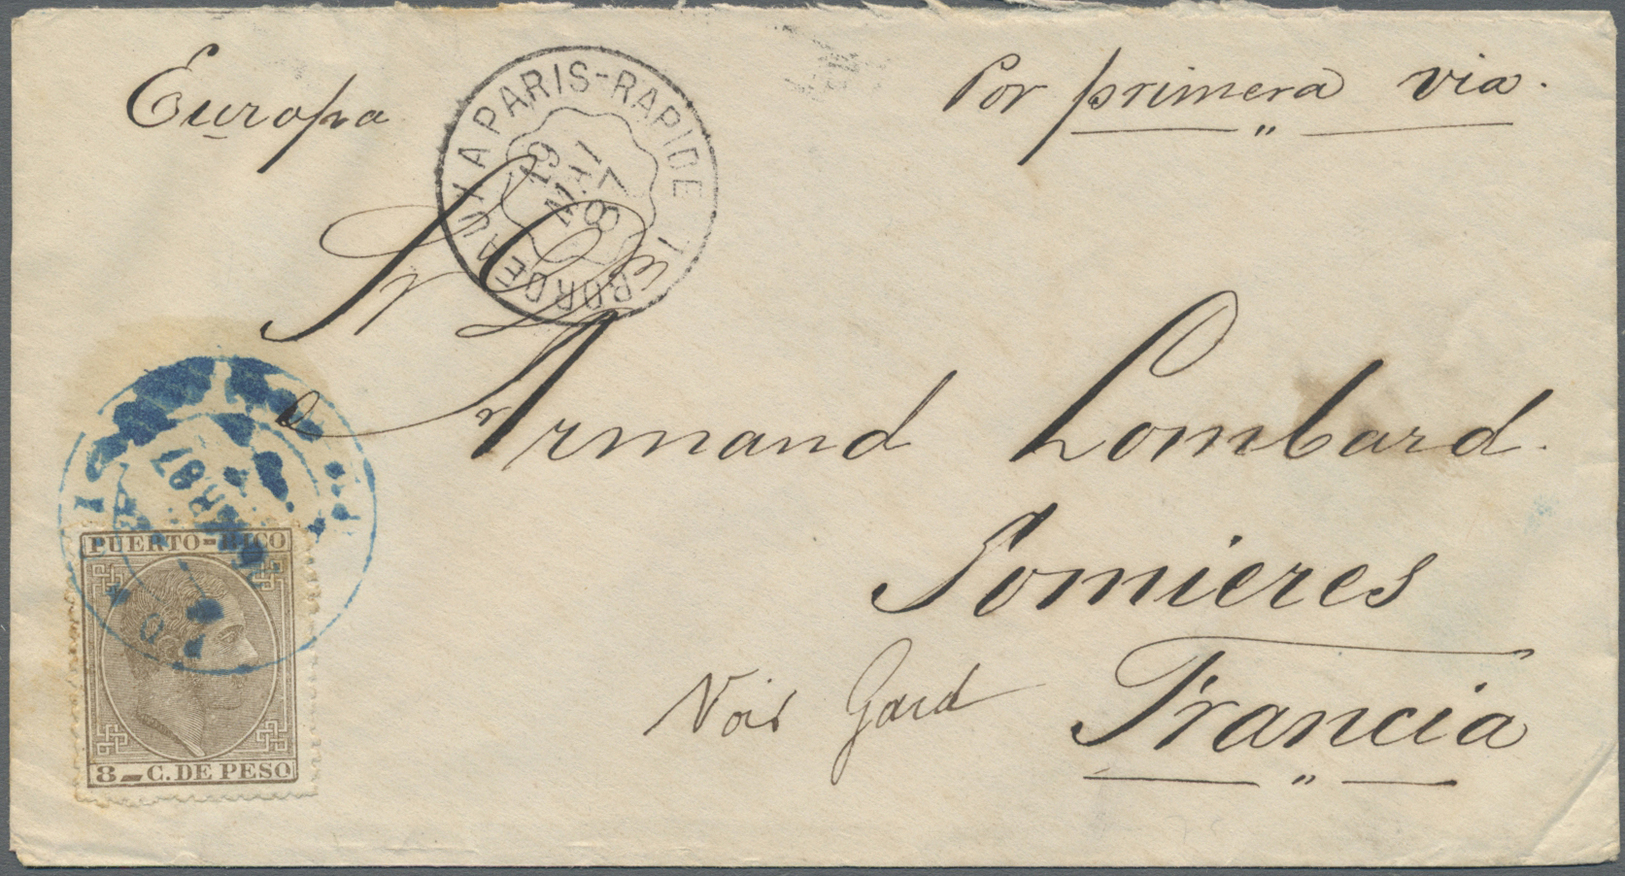 Europa
Por primera via.
BORDEAUX A PARIS-RAPIDE 1E
19
MAI
87
Sr Dn
Armand Lombard.
Somieres
Gard
Francia
87
PUERTO-RICO
8-C. DE PESO